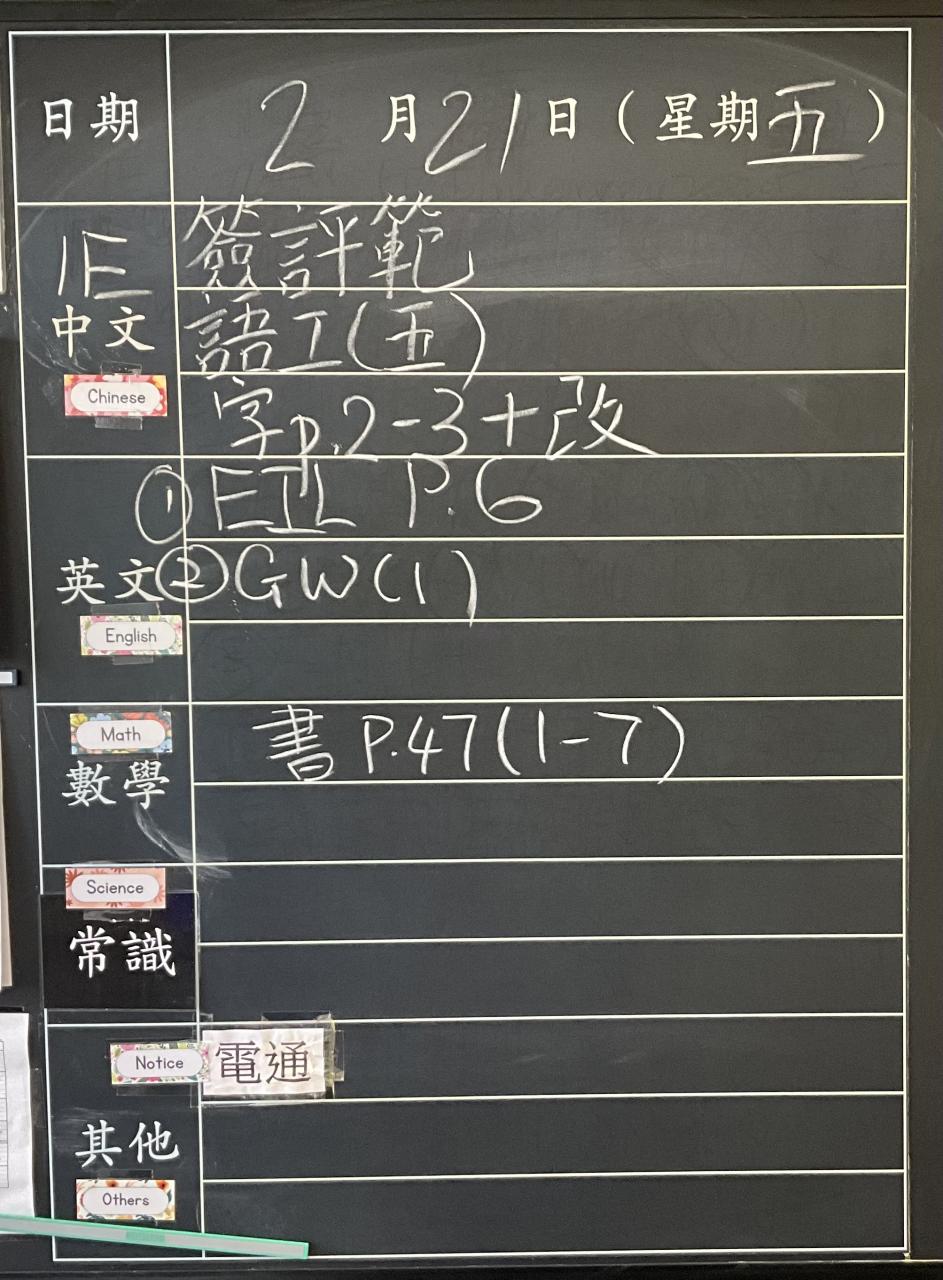 日期 2月21日(星期五)
1E 簽評範
中文 語工(五)
Chinese 字p.2-3+改
① EIL P.6
英文 ② GW(1)
English
Math 書 P.47(1-7)
數學
Science
常識
Notice 電通
其他
Others